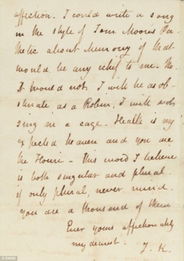 affection. I could write a song
in the style of Tom Moore's Pa-
thetic about Memory if that
would be any relief to me. No
I would not. I will be as ob-
stinate as a Robin, I will not
sing in a cage. Health is my
expected heaven and you are
the Houri - this word I believe
is both singular and plural
if only plural, never mind
you are a thousand of them
Ever yours affectionately
my dearest. J. K.